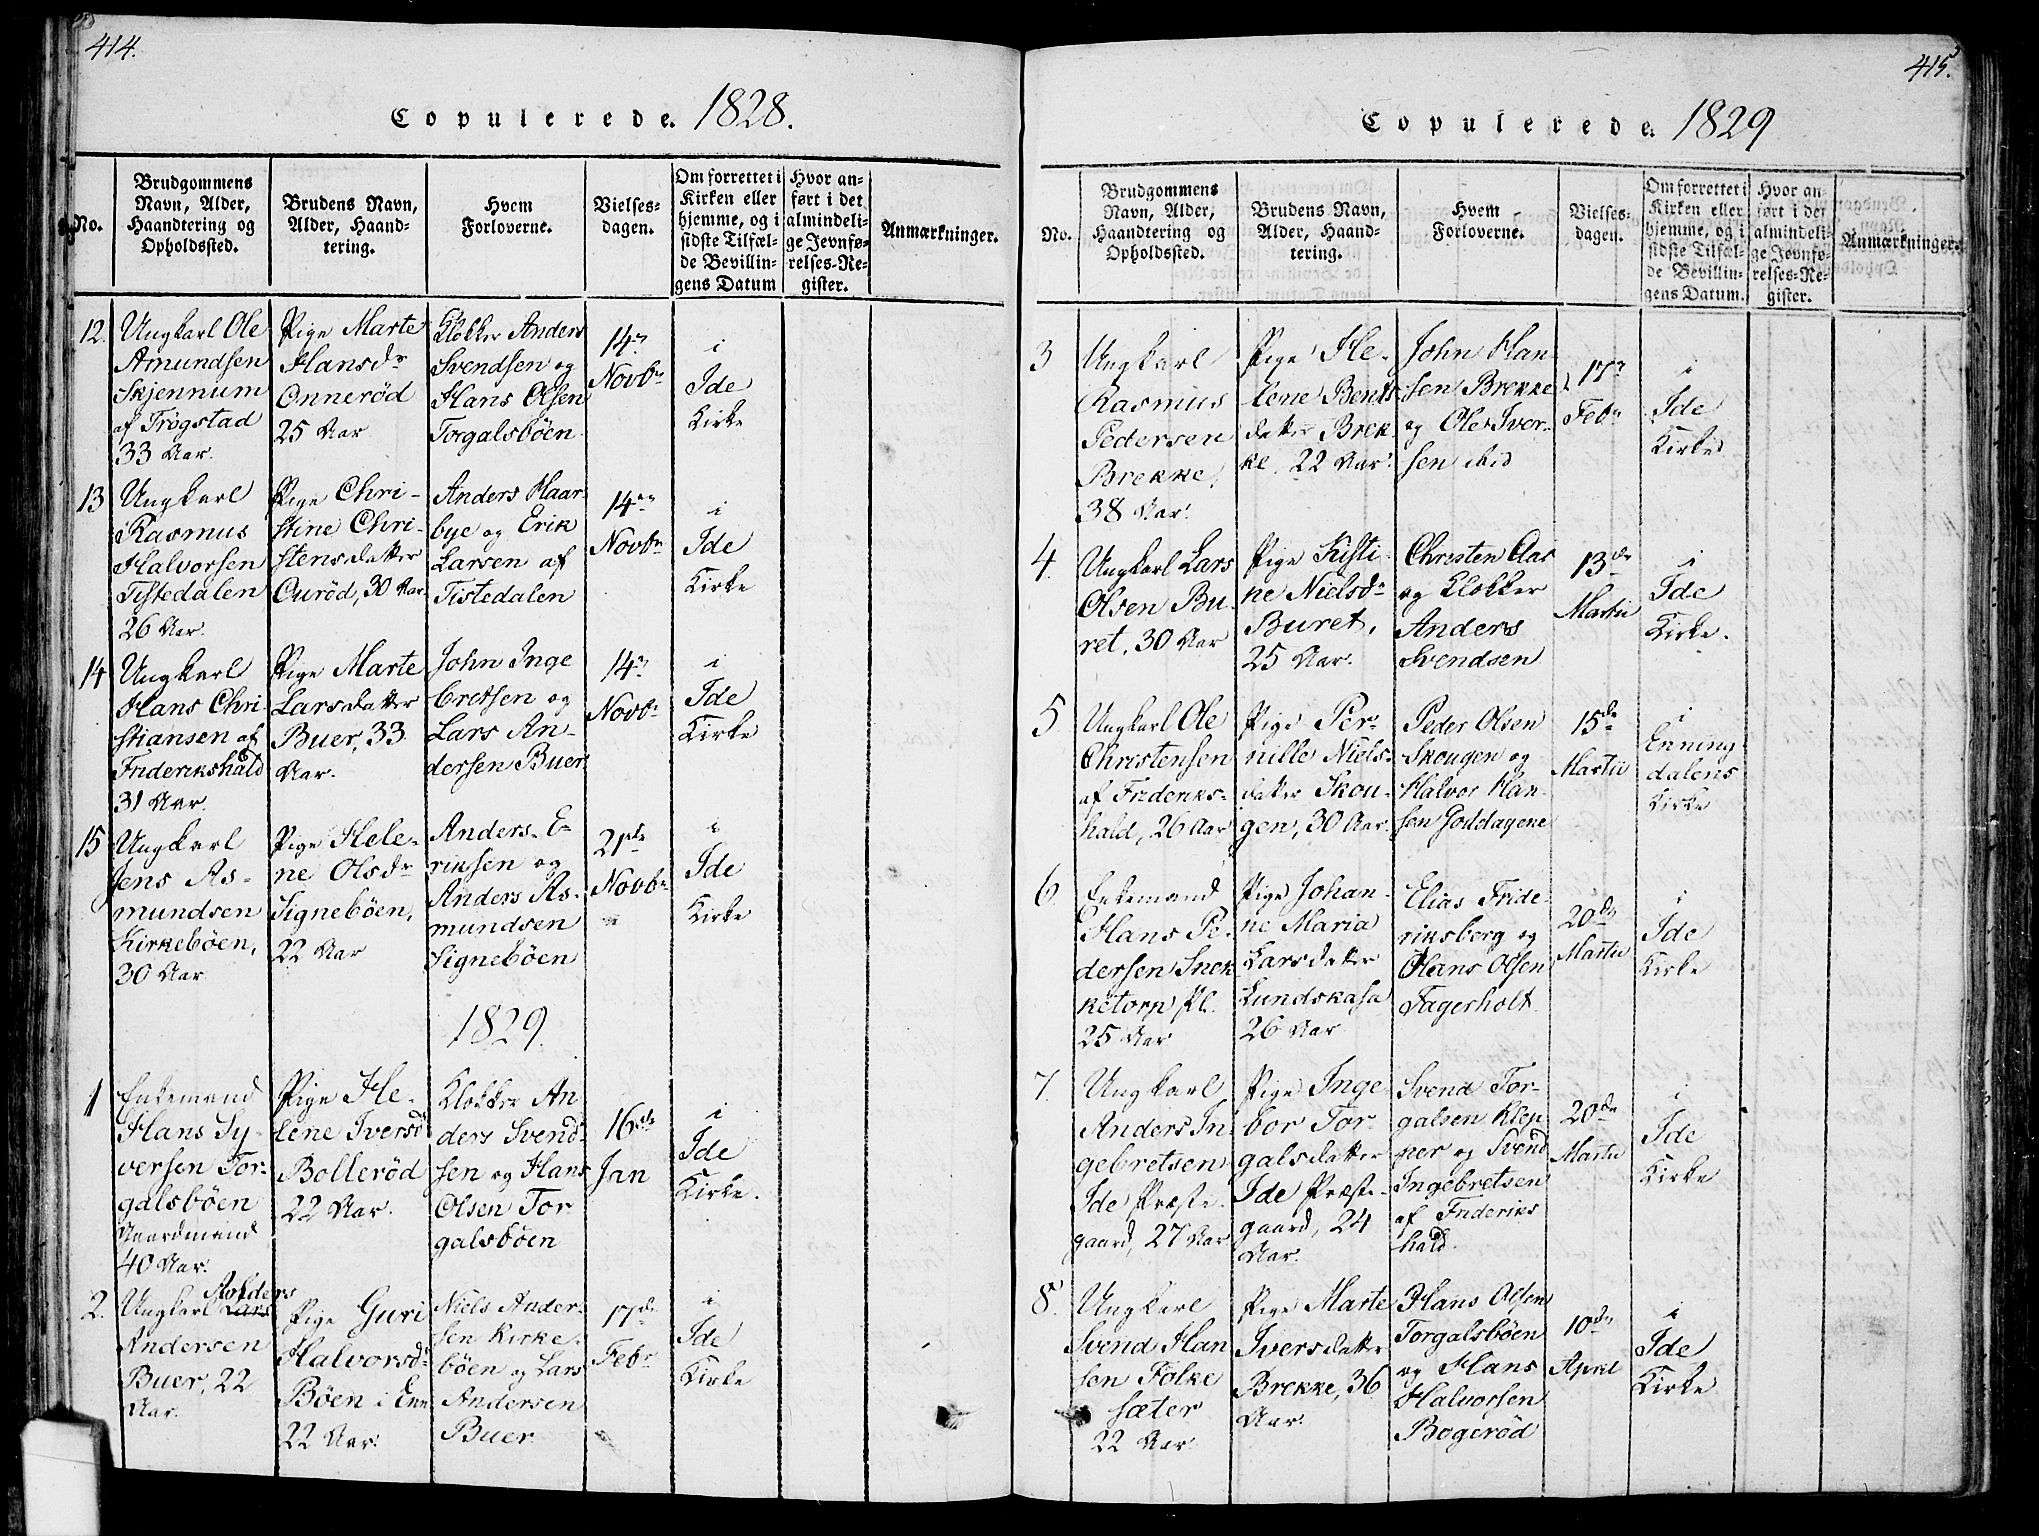 414.
Copulerede. 1828.
No.
Brudgommens
Navn, Alder,
Haandtering og
Opholdssted.
Brudens Navn,
Alder, Haand-
tering.
Hvem
Forloverne.
Vielses-
dagen.
Om forrettet i
Kirken eller
hjemme, og i
sidste Tilfæl-
de Bevillin-
gens Datum
Hvor an-
ført i det
almindeli-
ge Jevnfø-
relses-Re-
gister.
Anmærkninger.
12.
Ungkarl Ole
Amundsen
Skjennum
af Trøgstad
33 Aar.
Pige Marte
Hansdr
Onnerød
25 Aar
Klokker Anders
Svendsen og
Hans Olsen
Torgalsbøen
14de
Novbr
i
Ide
Kirke
13
Ungkarl
Rasmus
Halvorsen
Tistedalen
26 Aar.
Pige Chri-
stine Chri-
stensdatter
Ourød, 30 Aar
Anders Haar
bye og Erik
Larsen af
Tistedalen
14de
Novbr
i
Ide
Kirke
14
Ungkarl
Hans Chri
stiansen af
Friderikshald
31 Aar.
Pige Marte
Larsdatter
Buer, 33
Aar.
John Inge
bretsen og
Lars An-
dersen Buer
14de
Novbr
i
Ide
Kirke
15
Ungkarl
Jens As-
mundsen
Kirkebøen,
30 Aar
Pige Hele-
ne Olsdr
Signebøen,
22 Aar
Anders E-
riksen og
Anders As-
mundsen
Signebøen
21de
Novbr
i
Ide
Kirke
1829.
1
Enkemand
Hans Sy-
versen Tor-
galsbøen
Gaardmand
40 Aar.
Pige He-
lene Iversd
Bollerød
22 Aar.
Klokker An
ders Svend-
sen og Hans
Olsen Tor
galsbøen
16de
Jan
i
Ide
Kirke.
2.
Anders
Ungkarl Lars
Andersen
Buer, 22
Aar.
Pige Guri
Halvorsdr
Bøen i Enn
22 Aar.
Niels Ander-
sen Kirke-
bøen og Lars
Andersen
Buer
17de
Febr
i
Ide
Kirke
415.
Copulerede. 1829
No.
Brudgommens
Navn, Alder,
Haandtering og
Opholdssted.
Brudens Navn,
Alder, Haand-
tering.
Hvem
Forloverne.
Vielses-
dagen.
Om forrettet i
Kirken eller
hjemme, og i
sidste Tilfæl-
de Bevillin-
gens Datum.
Hvor an-
ført i det
almindeli-
ge Jevnfø-
relses-Re-
gister.
Anmærkninger.
3
Ungkarl
Rasmus
Pedersen
Brekke,
38 Aar.
Pige He-
lene Bents
datter Brek
ke, 22 Aar.
John Han-
sen Brekke
og Ole Iver-
sen ibid
17de
Febr
i
Ide
Kirke
4.
Ungkarl Lars
Olsen Bu-
ret, 30 Aar
Pige Kisti-
ne Nielsdr
Buret,
25 Aar.
Christen Aas
og Klokker
Anders
Svendsen
13de
Martii
i
Ide
Kirke.
5
Ungkarl Ole
Christensen
af Frideriks-
hald, 26 Aar
Pige Per-
nille Niels-
datter Skou-
gen, 30 Aar
Peder Olsen
Skougen og
Halvor Han-
sen Goddagene
15de
Martii
i
Enning
dalens
Kirke
6
Enkemand
Hans Pe-
dersen Snek
ketorp Pl.
25 Aar
Pige Johan-
ne Maria
Larsdatter
Lundskasa
26 Aar
Elias Fride-
riksberg og
Hans Olsen
Fagerholt
20de
Martii
i
Ide
Kirke
7.
Ungkarl
Anders In
gebretsen
Ide Præste-
gaard, 27 Aar
Pige Inge-
bor Tor-
galsdatter
Ide Præste-
gaard, 24
Aar.
Svend Tor-
galsen Klep
ner og Svend
Ingebretsen
af Frideriks
hald.
20de
Martii
i
Ide
Kirke
8.
Ungkarl
Svend Han
sen Folke
sæter
22 Aar
Pige Marte
Iversdatter
Brekke, 36
Aar.
Hans Olsen
Torgalsbøen
og Hans
Halvorsen
Bogerød
10de
April
i
Ide
Kirke